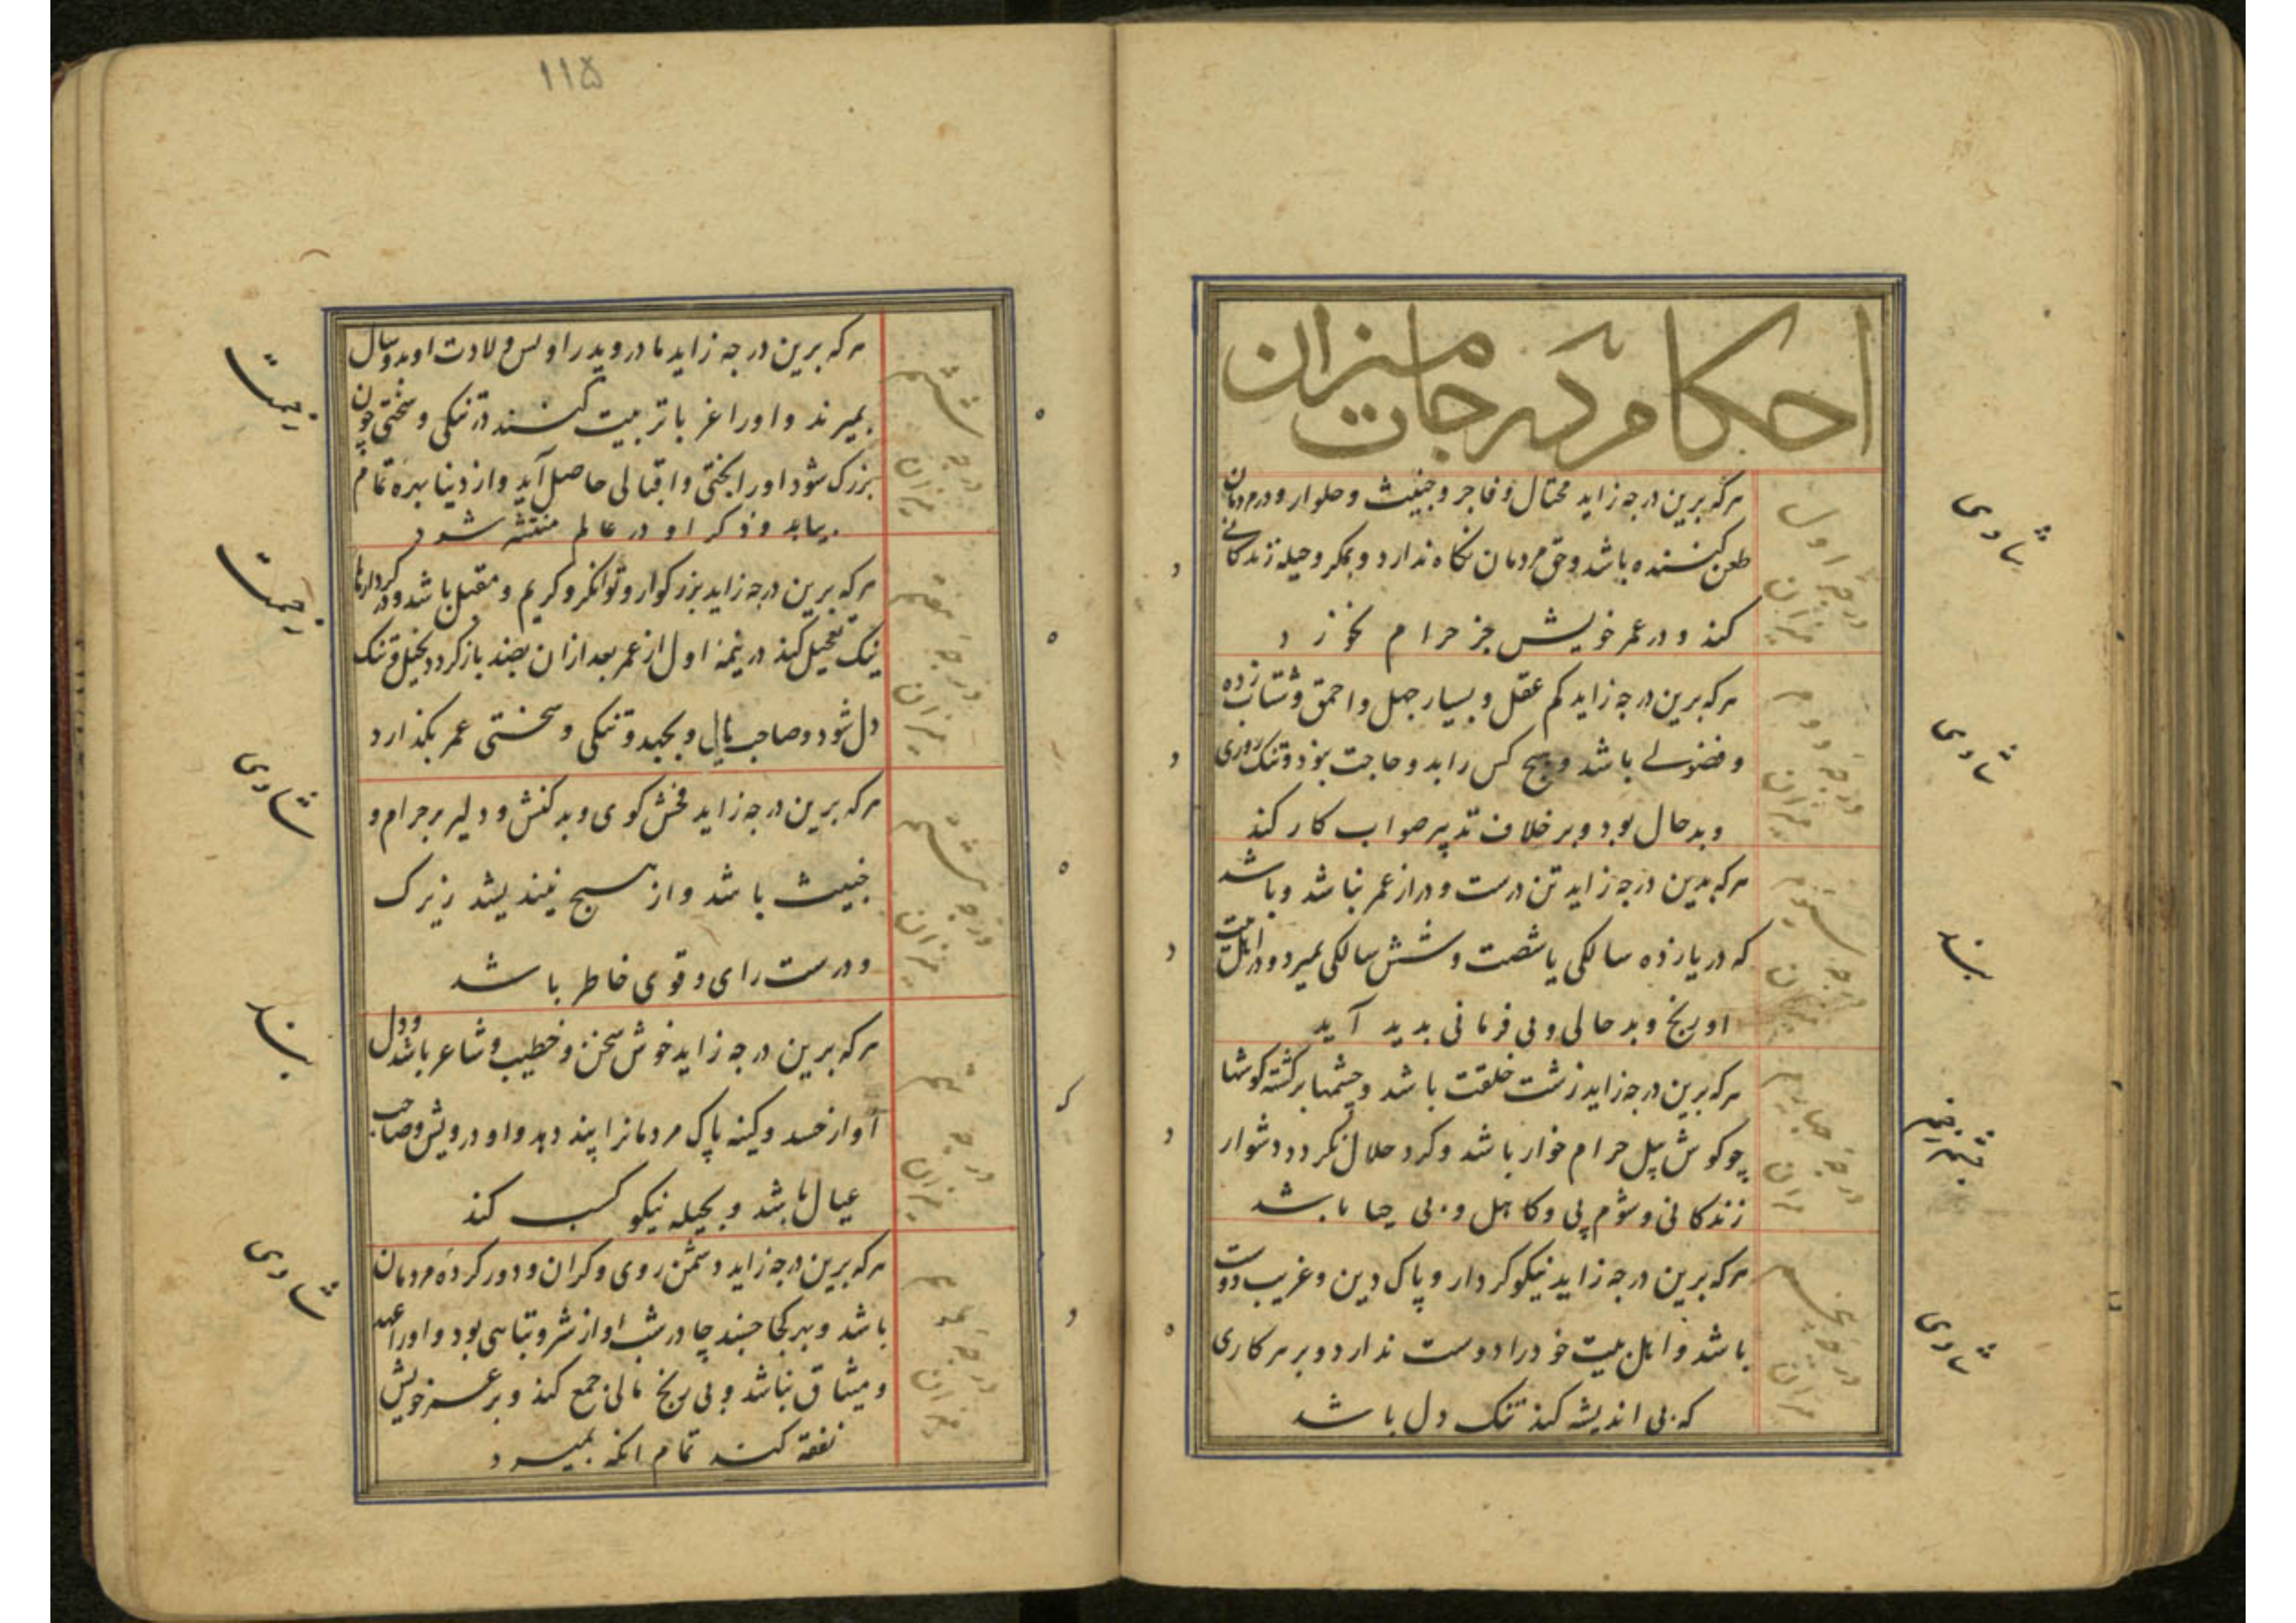 احکام درجات میزان
درجه اول
میزان
هرکه برین درجه زاید محتال و فاجر و خبیث و حلوار و در مردمان
طعن کننده باشد و حق مردمان نکاه ندارد و بمکر و حیله زندکانی
کند و در عمر خویش جز حرام نخورد
شادی
درجه دوم
میزان
هرکه برین درجه زاید کم عقل و بسیار جهل و احمق و شتاب زده
و فضولی باشد و هیچ کس را بدو حاجت نبود و تنک روزی
و بدحال بود و بر خلاف تدبیر صواب کار کند
شادی
درجه سیوم
میزان
هرکه بدین درجه زاید تن درست و دراز عمر نباشد و باشد
که در یازده سالکی یا شصت و شش سالکی بمیرد و در اهل بیت
او رنج و بدحالی و بی فرمانی بدید آید
درجه چهارم
میزان
هرکه برین درجه زاید زشت خلقت باشد و چشمها برکشته کوشها
چو کوش پیل حرام خوار باشد و کرد حلال نکردد و دشوار
زندکانی و شوم پی و کاهل و بی حیا باشد
درجه پنجم
میزان
هرکه برین درجه زاید نیکو کردار و پاک دین و غریب دوست
باشد و اهل بیت خود را دوست ندارد و بر هر کاری
که بی اندیشه کند تنک دل باشد
شادی
۱۱۵
درجه ششم
میزان
هرکه برین درجه زاید مادر و پدر او پس ولادت او بدو سال
بمیرند و او را غربا تربیت کنند در تنکی و سختی چون
بزرک شود او را بختی و اقبالی حاصل آید و از دنیا بهره تمام
بیابد و ذکر او در عالم منتشر شود
درجه هفتم
میزان
هرکه برین درجه زاید بزرکوار و توانکر و کریم و مقبل باشد و در کردارها
نیک تعجیل کند در نیمه اول از عمر بعد ازان بضد باز کردد بخیل و تنک
دل شود و صاحب مال و بجهد و تنکی و سختی عمر بکذارد
درجه هشتم
میزان
هرکه برین درجه زاید فحش کوی و بد کنش و دلیر بر حرام و
خبیث باشد و از هیچ نیندیشد زیرک
و درست رای و قوی خاطر باشد
شادی
درجه نهم
میزان
هرکه برین درجه زاید خوش سخن و خطیب و شاعر باشد و دل
او از حسد و کینه پاک مردمانرا پند دهد و او درویش و صاحب
عیال باشد و بحیله نیکو کسب کند
درجه دهم
میزان
هرکه برین درجه زاید دشمن روی و کران و دور کرده مردمان
باشد و بهر کجا خسبد چادرشب او از شر و تباهی بود و او را عهد
و میثاق نباشد و بی رنج مالی جمع کند و بر عمر خویش
نفقه کند تمام انکه بمیرد
شادی